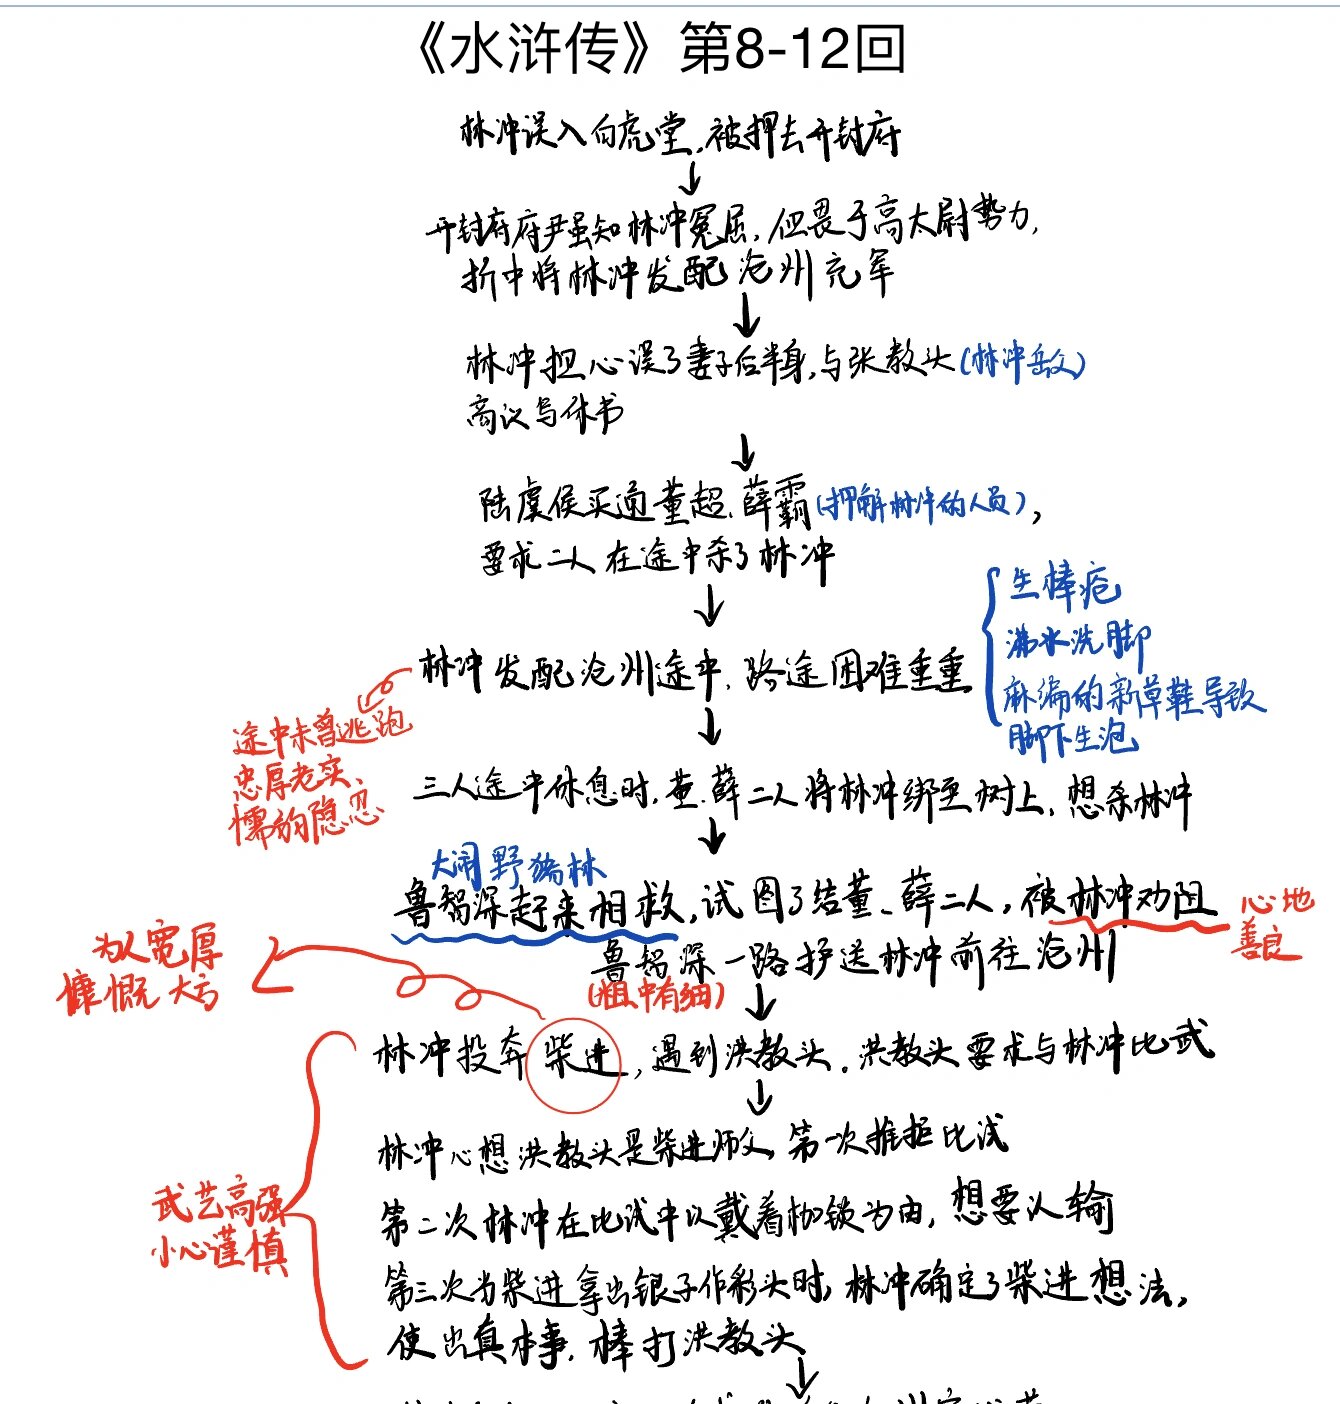 《水浒传》第8-12回
林冲误入白虎堂,被押去开封府
开封府府尹虽知林冲冤屈,但畏于高太尉势力,
折中将林冲发配沧州充军
林冲担心误了妻子后半身,与张教头(林冲岳父)
商议写休书
陆虞侯买通董超、薛霸(押解林冲的人员),
要求二人在途中杀了林冲
生棒疮
沸水洗脚
林冲发配沧州途中,路途困难重重
麻编的新草鞋导致
脚下生泡
途中未曾逃跑
忠厚老实、
懦弱隐忍
三人途中休息时,董、薛二人将林冲绑至树上,想杀林冲
大闹野猪林
鲁智深赶来相救,试图了结董、薛二人,被林冲劝阻
心地
善良
鲁智深一路护送林冲前往沧州
(粗中有细)
为人宽厚
慷慨大方
林冲投奔柴进,遇到洪教头,洪教头要求与林冲比武
林冲心想洪教头是柴进师父,第一次推拒比试
武艺高强
小心谨慎
第二次林冲在比试中以戴着枷锁为由,想要认输
第三次为柴进拿出银子作彩头时,林冲确定了柴进想法,
使出真本事,棒打洪教头